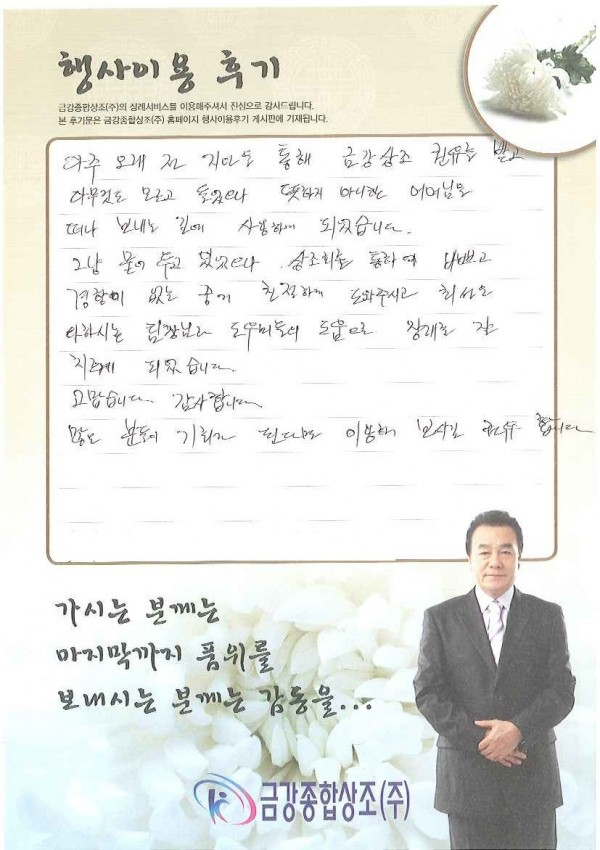 행사이용 후기
금강종합상조(주)의 장례서비스를 이용해주셔서 진심으로 감사드립니다.
본 후기문은 금강종합상조(주) 홈페이지 행사이용후기 게시판에 기재됩니다.
아주 오래 전 지인을 통해 금강상조 권유를 받고
아무것도 모르고 들었으나 뜻하지 아니한 어머님을
떠나 보내는 일에 사용하게 되었습니다.
그냥 묻어 두고 있었으나 상조회를 통하여 바쁘고
경황이 없는 중에 친절하게 도와주시고 최선을
다하시는 팀장님과 도우미들의 도움으로 장례를 잘
치르게 되었습니다.
고맙습니다. 감사합니다.
많은 분들이 기회가 된다면 이용해 보시길 권유 합니다
가시는 분께는
마지막까지 품위를
보내시는 분께는 감동을...
금강종합상조(주)